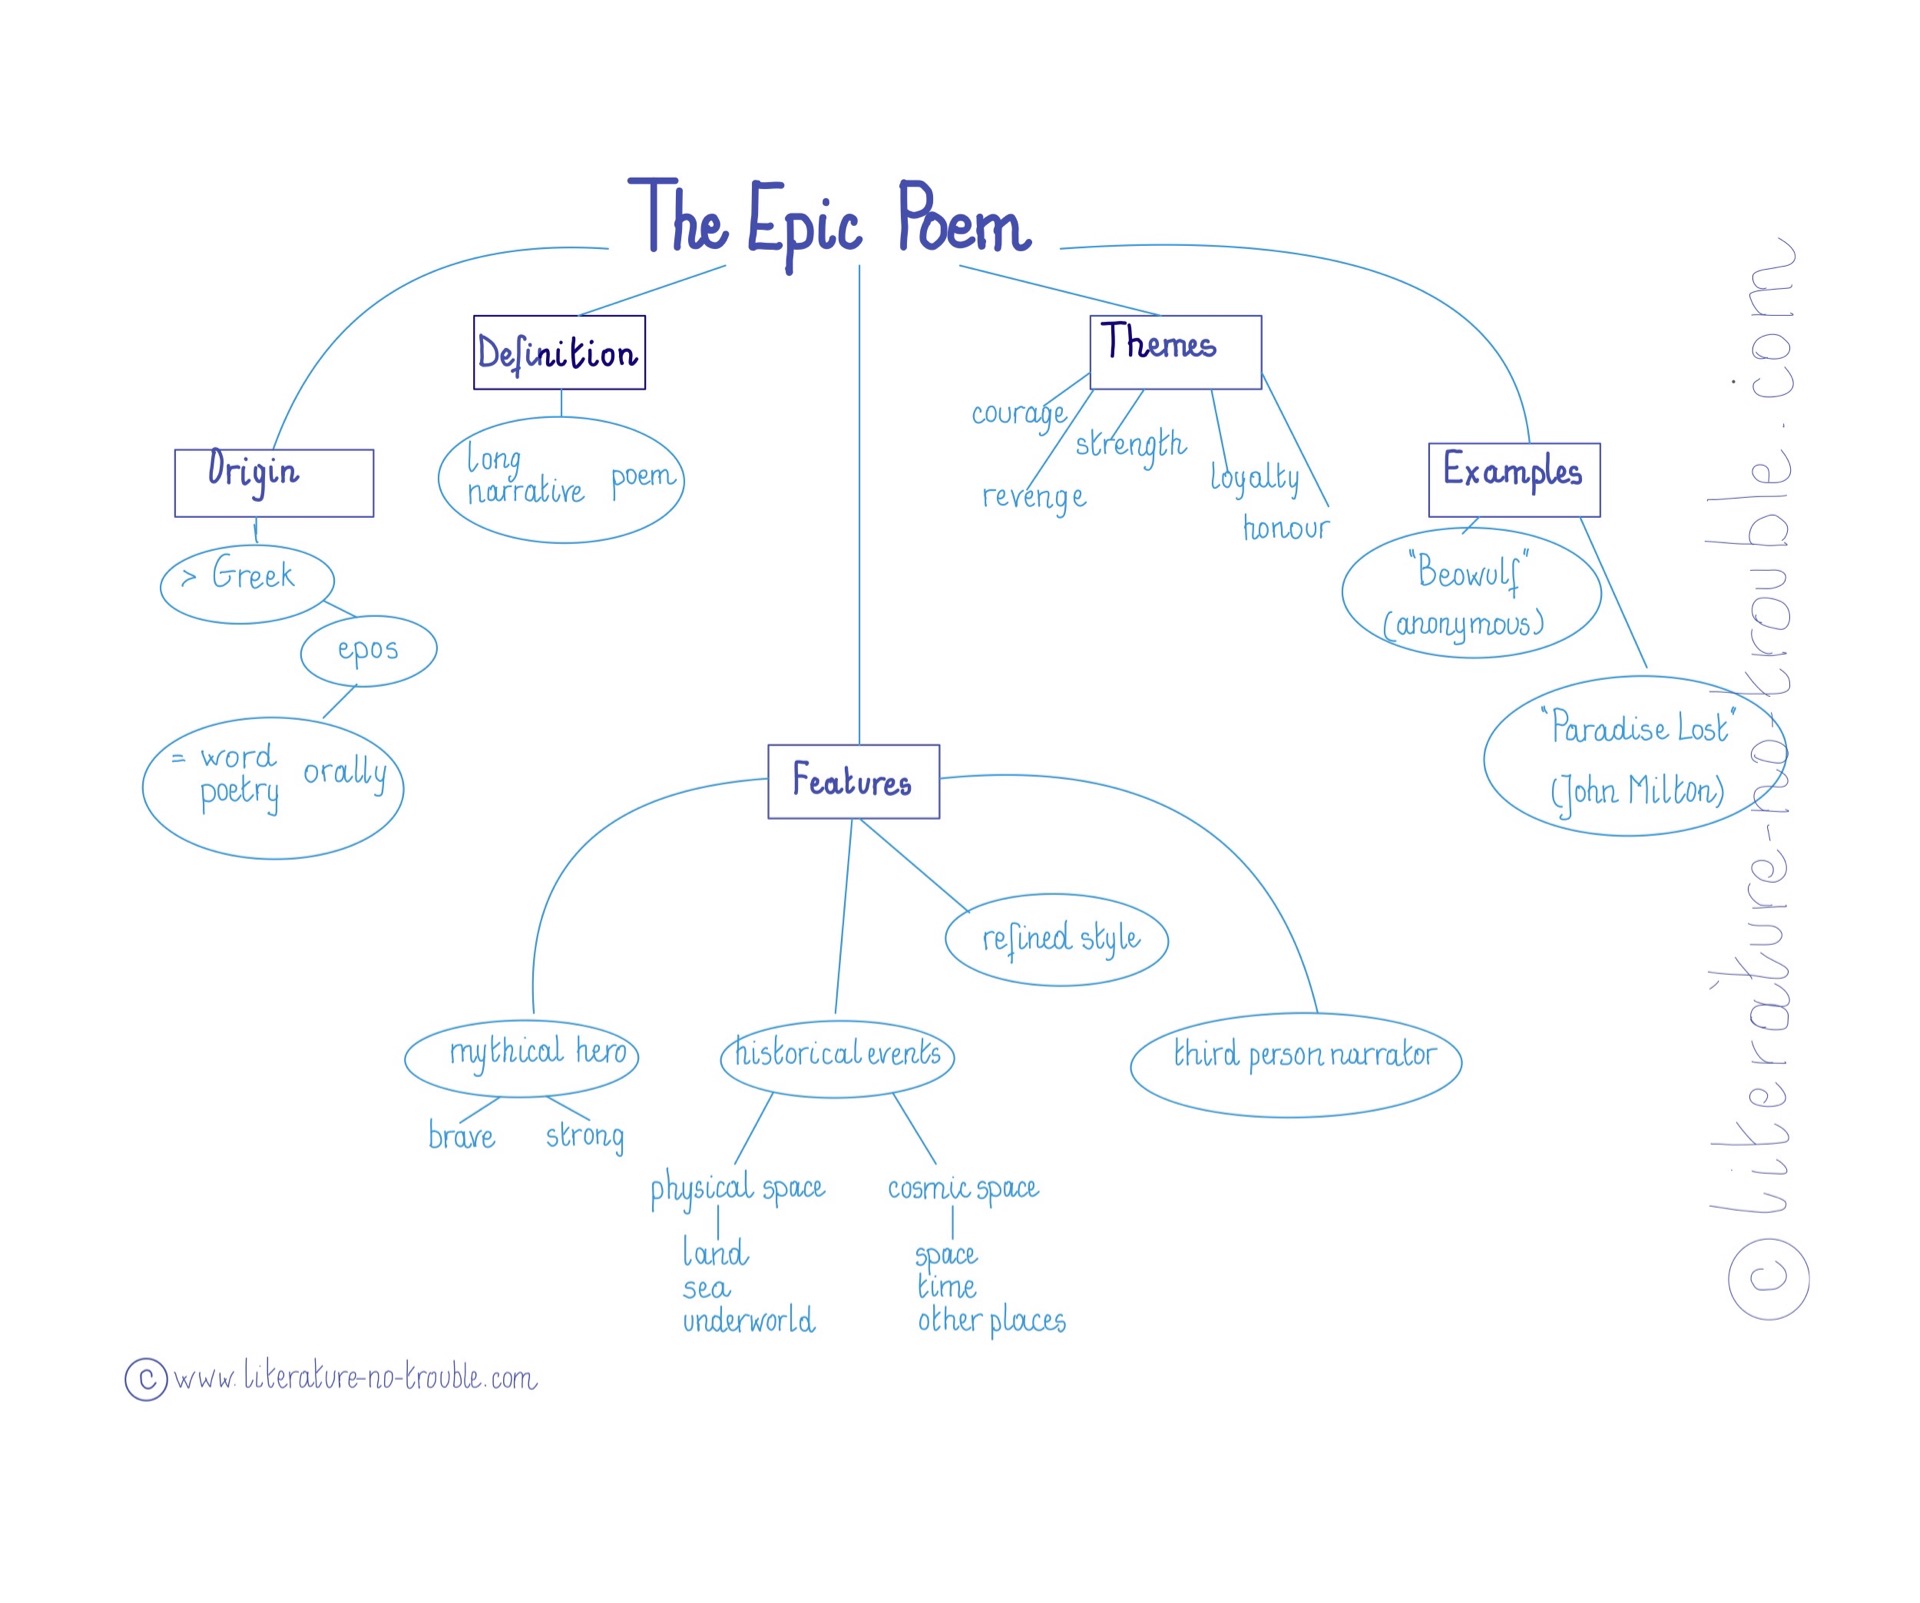 The Epic Poem
Origin
> Greek
epos
= word
poetry orally
Definition
long
narrative poem
Features
mythical hero
brave strong
historical events
physical space
land
sea
underworld
cosmic space
space
time
other places
refined style
third person narrator
Themes
courage
revenge
strength
loyalty
honour
Examples
"Beowulf"
(anonymous)
"Paradise Lost"
(John Milton)
© www.literature-no-trouble.com
© literature-no-trouble.com